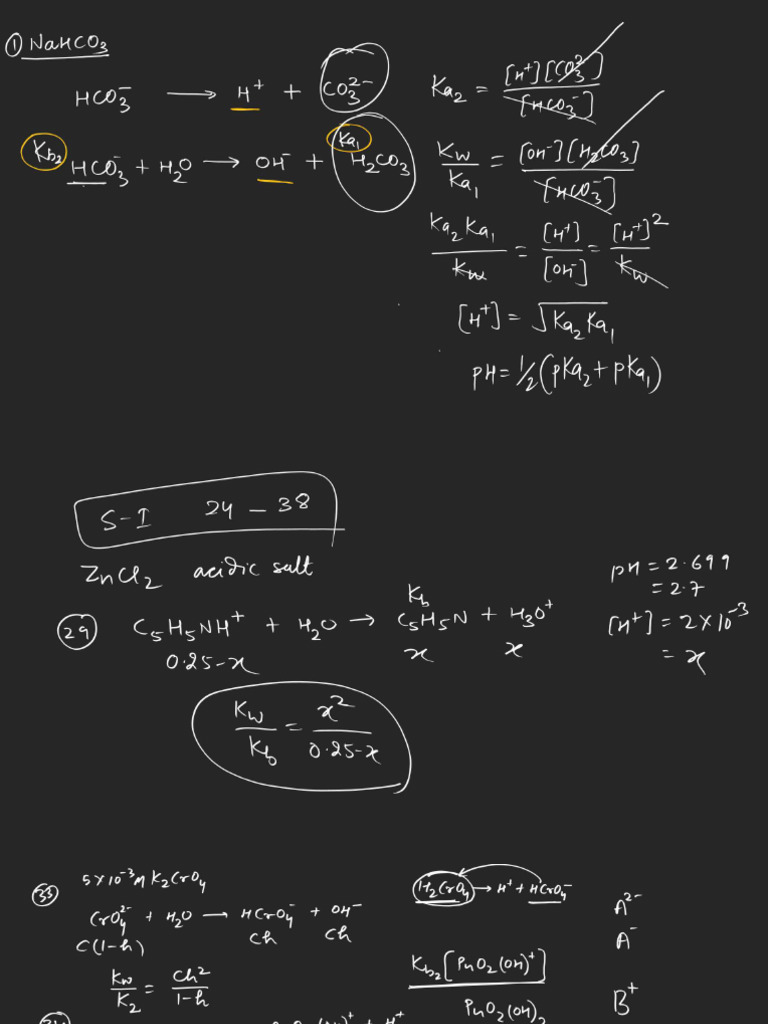 ① NaHCO3
HCO3⁻ → H⁺ + CO3²⁻
Ka2 = [H⁺][CO3²⁻] / [HCO3⁻]
Kb2 HCO3⁻ + H2O → OH⁻ + H2CO3 Ka1
Kw / Ka1 = [OH⁻][H2CO3] / [HCO3⁻]
Ka2 Ka1 / Kw = [H⁺] / [OH⁻] = [H⁺]² / Kw
[H⁺] = √Ka2 Ka1
pH = 1/2 (pKa2 + pKa1)
S-I 24 – 38
ZnCl2 acidic salt
㉙ C5H5NH⁺ + H2O → C5H5N + H3O⁺
Kb
0.25-x x x
pH = 2.699
= 2.7
[H⁺] = 2×10⁻³
= x
Kw / Kb = x² / 0.25-x
㉝ 5×10⁻³M K2CrO4
CrO4²⁻ + H2O → HCrO4⁻ + OH⁻
C(1-h) Ch Ch
Kw / K2 = Ch² / 1-h
H2CrO4 → H⁺ + HCrO4⁻
A²⁻
A⁻
B⁺
Kb2 [PuO2(OH)⁺]
PuO2(OH)2